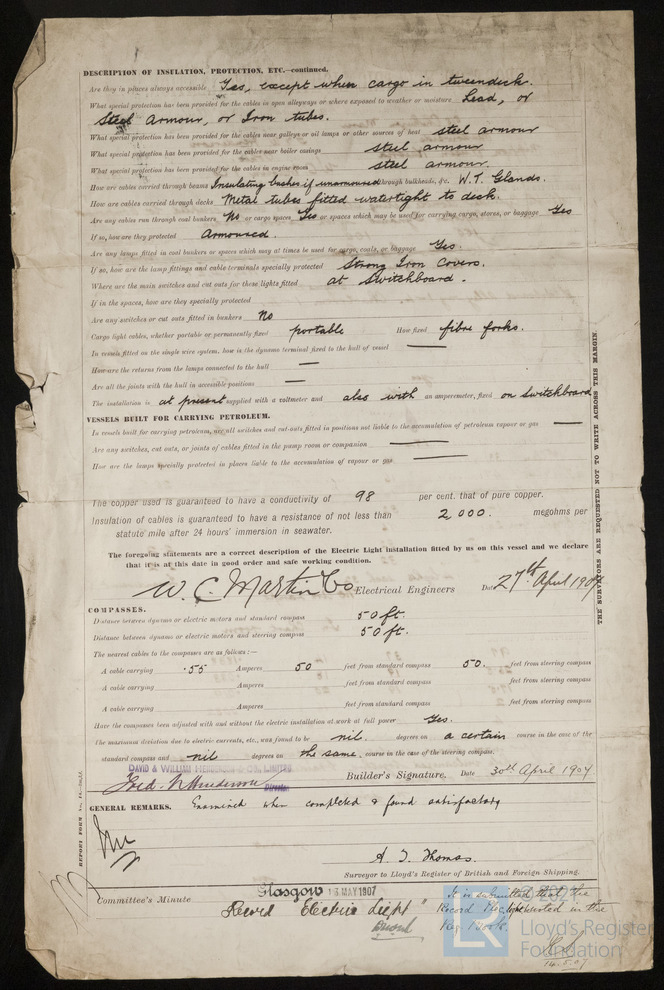 DESCRIPTION OF INSULATION, PROTECTION, ETC.—continued.
Are they in places always accessible Yes, except when cargo in tweendeck.
What special protection has been provided for the cables in open alleyways or where exposed to weather or moisture Lead, or
Steel armour, or Iron tubes.
What special protection has been provided for the cables near galleys or oil lamps or other sources of heat steel armour
What special protection has been provided for the cables near boiler casings steel armour
What special protection has been provided for the cables in engine room steel armour.
How are cables carried through beams Insulating bushes if unarmoured through bulkheads, &c. W.T. Glands.
How are cables carried through decks Metal tubes fitted watertight to deck.
Are any cables run through coal bunkers No or cargo spaces Yes or spaces which may be used for carrying cargo, stores, or baggage Yes
If so, how are they protected Armoured.
Are any lamps fitted in coal bunkers or spaces which may at times be used for cargo, coals, or baggage Yes.
If so, how are the lamp fittings and cable terminals specially protected Strong Iron Covers.
Where are the main switches and cut outs for these lights fitted at Switchboard.
If in the spaces, how are they specially protected
Are any switches or cut outs fitted in bunkers No
Cargo light cables, whether portable or permanently fixed portable How fixed fibre forks.
In vessels fitted on the single wire system, how is the dynamo terminal fixed to the hull of vessel —
How are the returns from the lamps connected to the hull —
Are all the joints with the hull in accessible positions —
The installation is at present supplied with a voltmeter and also with an amperemeter, fixed on Switchboard
VESSELS BUILT FOR CARRYING PETROLEUM.
In vessels built for carrying petroleum, are all switches and cut-outs fitted in positions not liable to the accumulation of petroleum vapour or gas —
Are any switches, cut outs, or joints of cables fitted in the pump room or companion —
How are the lamps specially protected in places liable to the accumulation of vapour or gas —
The copper used is guaranteed to have a conductivity of 98 per cent. that of pure copper.
Insulation of cables is guaranteed to have a resistance of not less than 2,000. megohms per
statute mile after 24 hours' immersion in seawater.
The foregoing statements are a correct description of the Electric Light installation fitted by us on this vessel and we declare
that it is at this date in good order and safe working condition.
W. C. Martin & Co Electrical Engineers Date 27th April 1907
COMPASSES.
Distance between dynamo or electric motors and standard compass 50 ft.
Distance between dynamo or electric motors and steering compass 50 ft.
The nearest cables to the compasses are as follows:—
A cable carrying .55 Amperes 50 feet from standard compass 50. feet from steering compass
A cable carrying Amperes feet from standard compass feet from steering compass
A cable carrying Amperes feet from standard compass feet from steering compass
Have the compasses been adjusted with and without the electric installation at work at full power Yes.
The maximum deviation due to electric currents, etc., was found to be nil. degrees on a certain course in the case of the
standard compass and nil degrees on the same course in the case of the steering compass.
DAVID & WILLIAM HENDERSON & CO. LIMITED
Director
Builder's Signature. Date 30th April 1907
GENERAL REMARKS. Examined when completed & found satisfactory
A. J. Thomas.
Surveyor to Lloyd's Register of British and Foreign Shipping.
Committee's Minute Glasgow 13 MAY 1907
Record "Electric Light"
It is submitted that the
Record Elec light noted in the
Reg. Book.
14.5.07
THE SURVEYORS ARE REQUESTED NOT TO WRITE ACROSS THIS MARGIN.
REPORT FORM
Lloyd's Register
Foundation